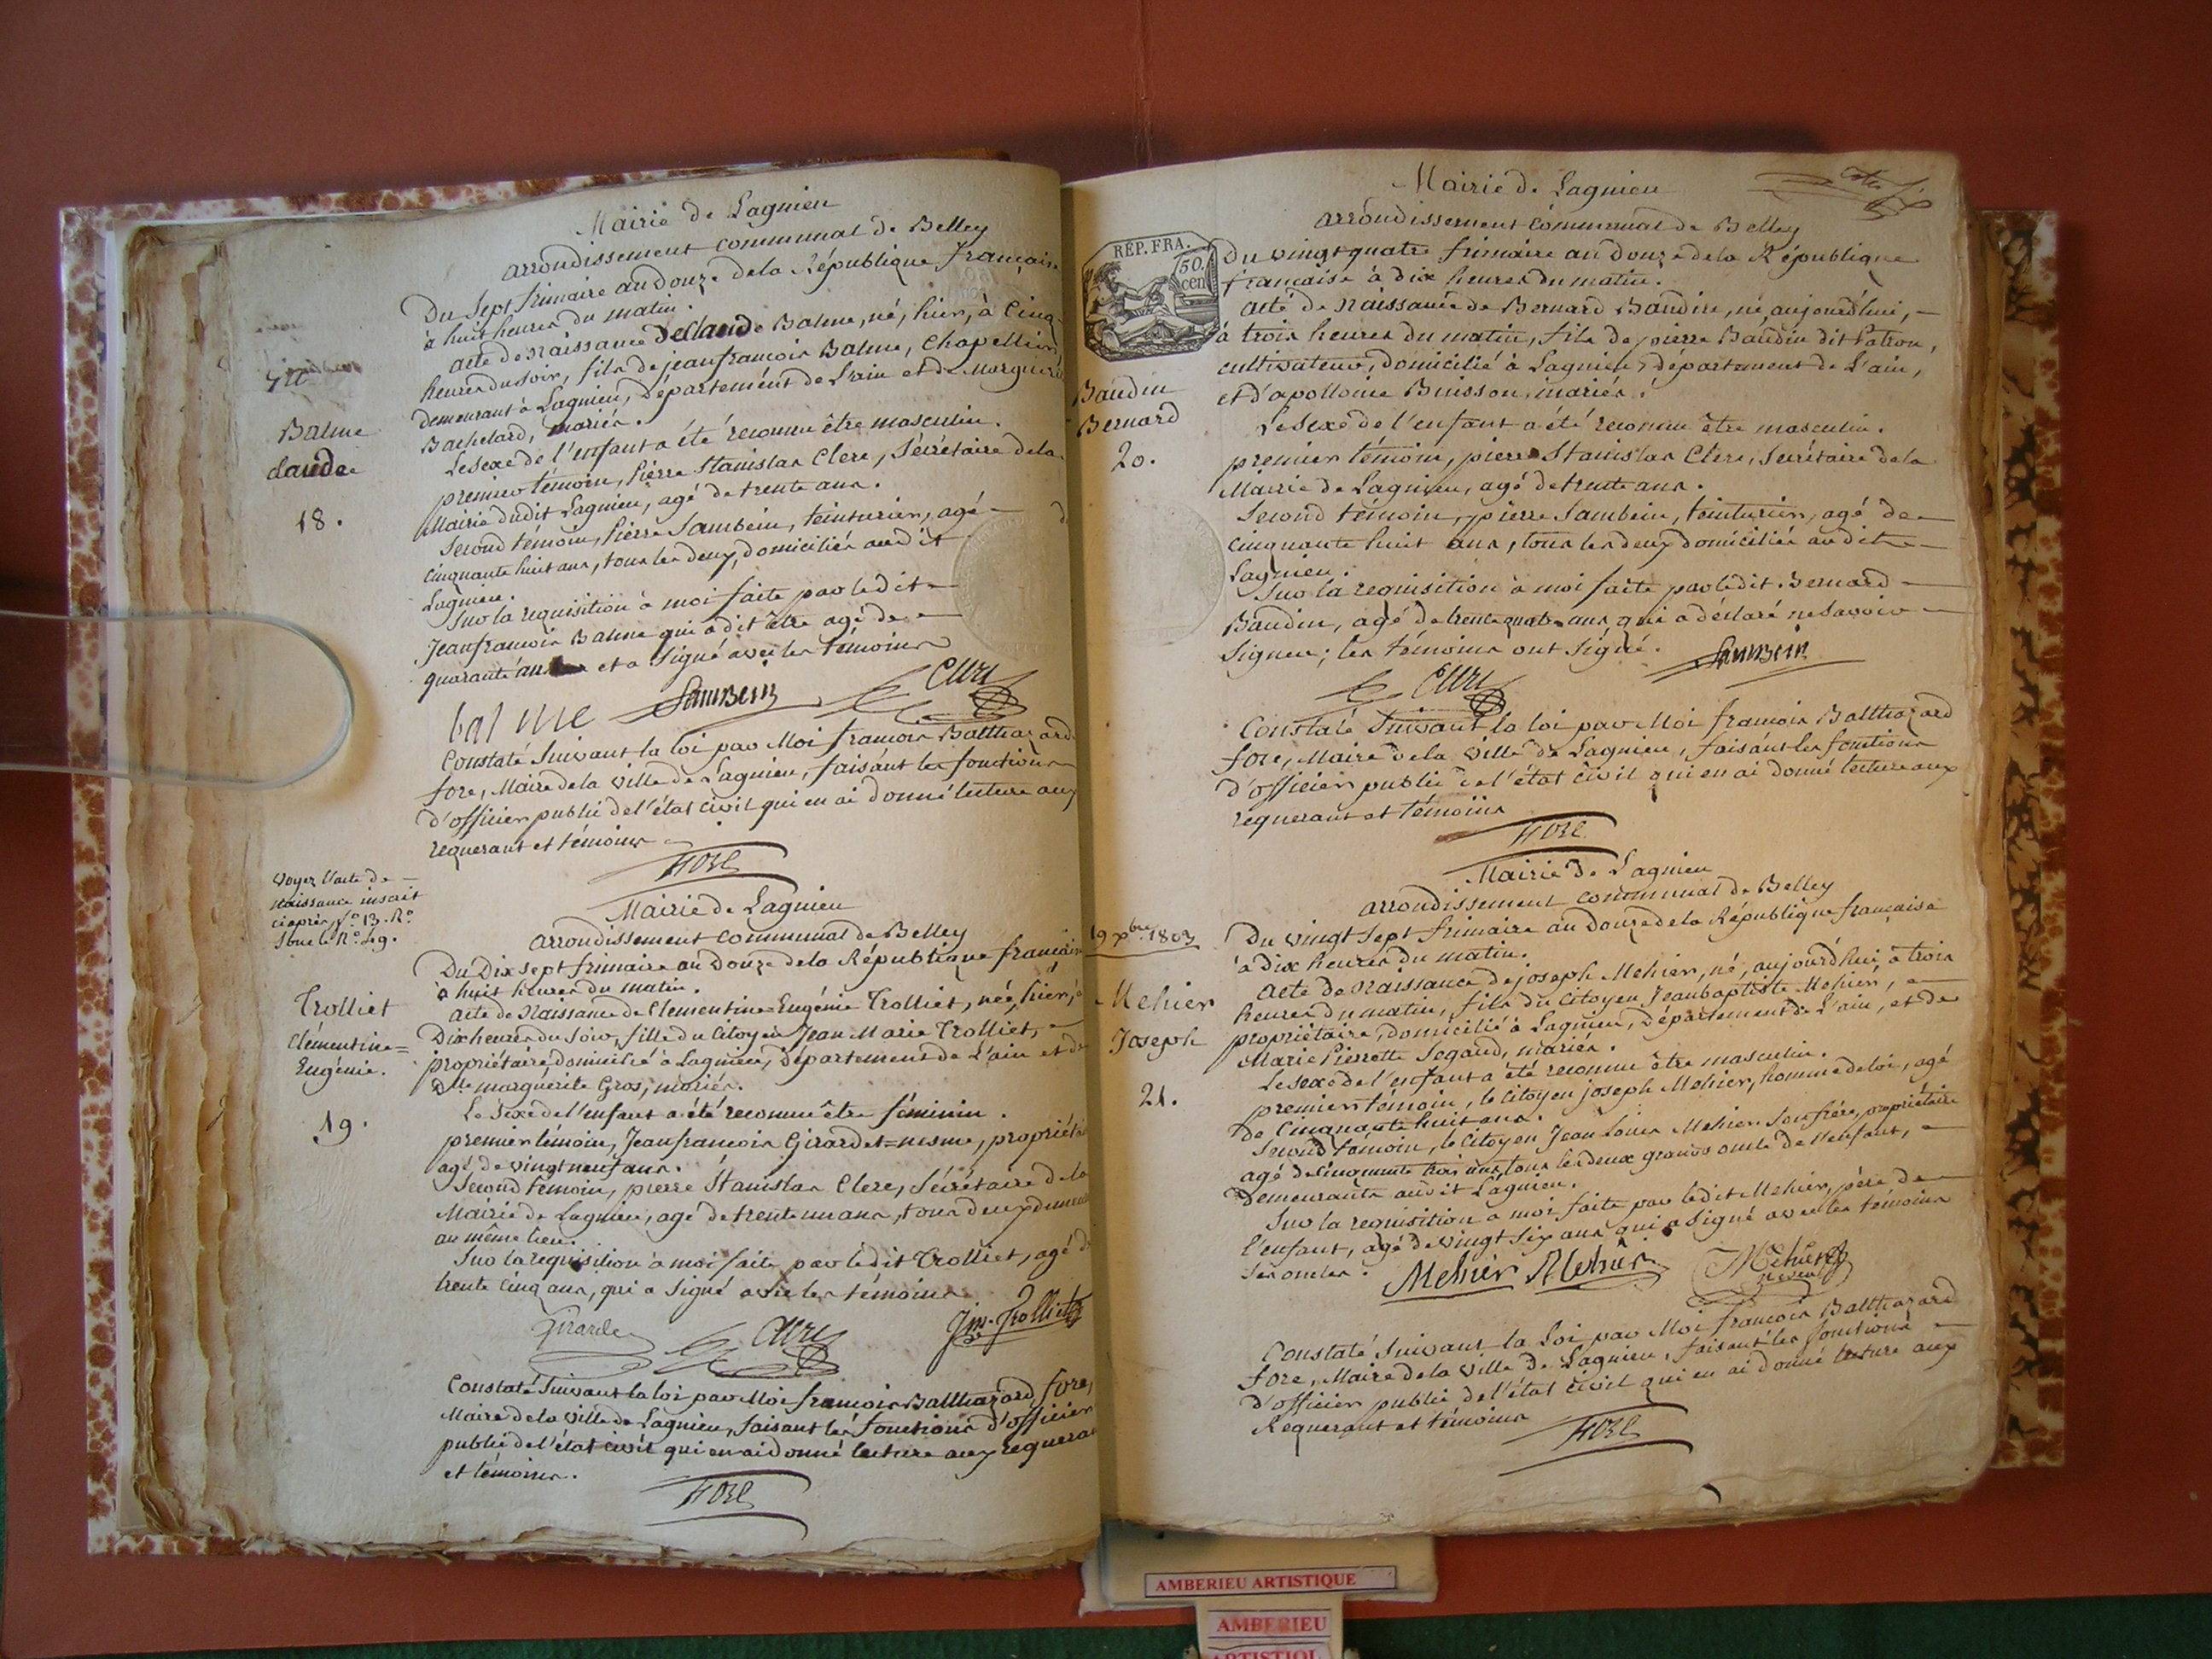 Mairie de Lagnieu
arrondissement communal de Belley
Du Sept frimaire an douze de la République française
à huit heures du matin.
acte de naissance de Claude Balme, né, hier, à cinq
heures du soir, fils de jean francois Balme, Chapellier,
demeurant à Lagnieu, Département de L'ain et de Marguerite
Bachelard, mariés.
Le sexe de l'enfant a été reconnu être masculin.
premier témoin, Pierre Stanislas Clerc, Sécrétaire de la
Mairie dudit Lagnieu, agé de trente ans.
Second témoin, Pierre Sambein, teinturier, agé
cinquante huit ans, tous les deux domiciliés audit
Lagnieu.
Sur la requisition à moi faite par le dit
Jean francois Balme qui a dit être agé de
quarante ans et a signé avec les témoins
balme Sambein Clerc
Constaté Suivant la loi par Moi francois Balthazard
fore, Maire de la ville de Lagnieu, faisant les fonctions
d'officier public de l'état civil qui en ai donné lecture aux
requerant et témoins
FORE
Balme
claude
18.
Mairie de Lagnieu
arrondissement communal de Belley
Du Dix sept frimaire an Douze de la République française
à huit heures du matin.
acte de Naissance de Clementine=Eugénie Trolliet, née, hier, à
Dix heures du soir, fille du Citoyen Jean Marie Trolliet,
propriétaire, domicilié à Lagnieu, Département de L'ain et de
Dlle marguerite Gros, mariés.
Le Sexe de l'enfant a été reconnu être féminin.
premier témoin, Jean francois Girardet=nesme, propriét
agé de vingt neuf ans.
Second témoin, pierre Stanislas Clerc, Sécrétaire de la
Mairie de Lagnieu, agé de trente un ans, tous deux demeur
au même lieu.
Sur la requisition à moi faite par le dit Trolliet, agé de
trente cinq ans, qui a signé avec les témoins
Girardet Clerc Jm. Trolliet
Constaté Suivant la loi par Moi francois Balthazard fore,
Maire de la ville de Lagnieu, faisant les fonctions d'officier
public de l'état civil qui en ai donné lecture aux requerant
et témoins.
FORE
voyez l'acte de
naissance inscrit
ciaprès, fo. 13. Ro
Sous le No. 49.
Trolliet
Clémentine=
Eugénie.
19.
Mairie de Lagnieu
arrondissement communal de Belley
RÉP. FRA.
50.
cen
Du vingt quatre frimaire an douze de la République
française à dix heures du matin.
acte de naissance de Bernard Baudin, né, aujourd'hui,
à trois heures du matin, fils de pierre Baudin dit Patron,
cultivateur, domicilié à Lagnieu, département de L'ain,
et d'apolloine Buisson, mariés.
Le Sexe de l'enfant a été reconnu être masculin.
premier témoin, pierre Stanislas Clerc, Secrétaire de la
Mairie de Lagnieu, agé de trente ans.
Second témoin, pierre Sambein, teinturier, agé de
cinquante huit ans, tous les deux domiciliés audit
Lagnieu.
Sur la requisition à moi faite par le dit Bernard
Baudin, agé de trente quatre ans qui a déclaré ne Savoir
Signer; les témoins ont Signé.
Sambein
Clerc
Constaté Suivant la loi par Moi francois Balthazard
fore, Maire de la ville de Lagnieu, faisant les fonctions
d'officier public de l'état civil qui en ai donné lecture aux
requerant et témoins
FORE
Baudin
Bernard
20.
Mairie de Lagnieu
arrondissement communal de Belley
Du vingt sept frimaire an douze de la République française
à dix heures du matin.
acte de naissance de joseph Mehier, né, aujourd'hui, à trois
heures du matin, fils du Citoyen Jean baptiste Mehier,
propriétaire, domicilié à Lagnieu, Département de L'ain, et de
Marie Pierrette Segaud, mariés.
Le Sexe de l'enfant a été reconnu être masculin.
premier témoin, le citoyen joseph Mehier, homme de loi, agé
de cinquante huit ans.
Second témoin, le citoyen Jean Louis Mehier Son frère, propriétaire
agé de cinquante trois ans, tous les deux grands oncle de l'enfant,
demeurants audit Lagnieu.
Sur la requisition à moi faite par le dit Mehier, père de
l'enfant, agé de vingt six ans qui a signé avec les témoins
Ses oncles.
Mehier Mehier Mehier
neveu
Constaté Suivant la Loi par Moi francois Balthazard
fore, Maire de la ville de Lagnieu, faisant les fonctions
d'officier public de l'état civil qui en ai donné lecture aux
Requerant et témoins
FORE
19 Xbre 1803
Mehier
Joseph
21.
AMBERIEU ARTISTIQUE
AMBERIEU
ARTISTIQ